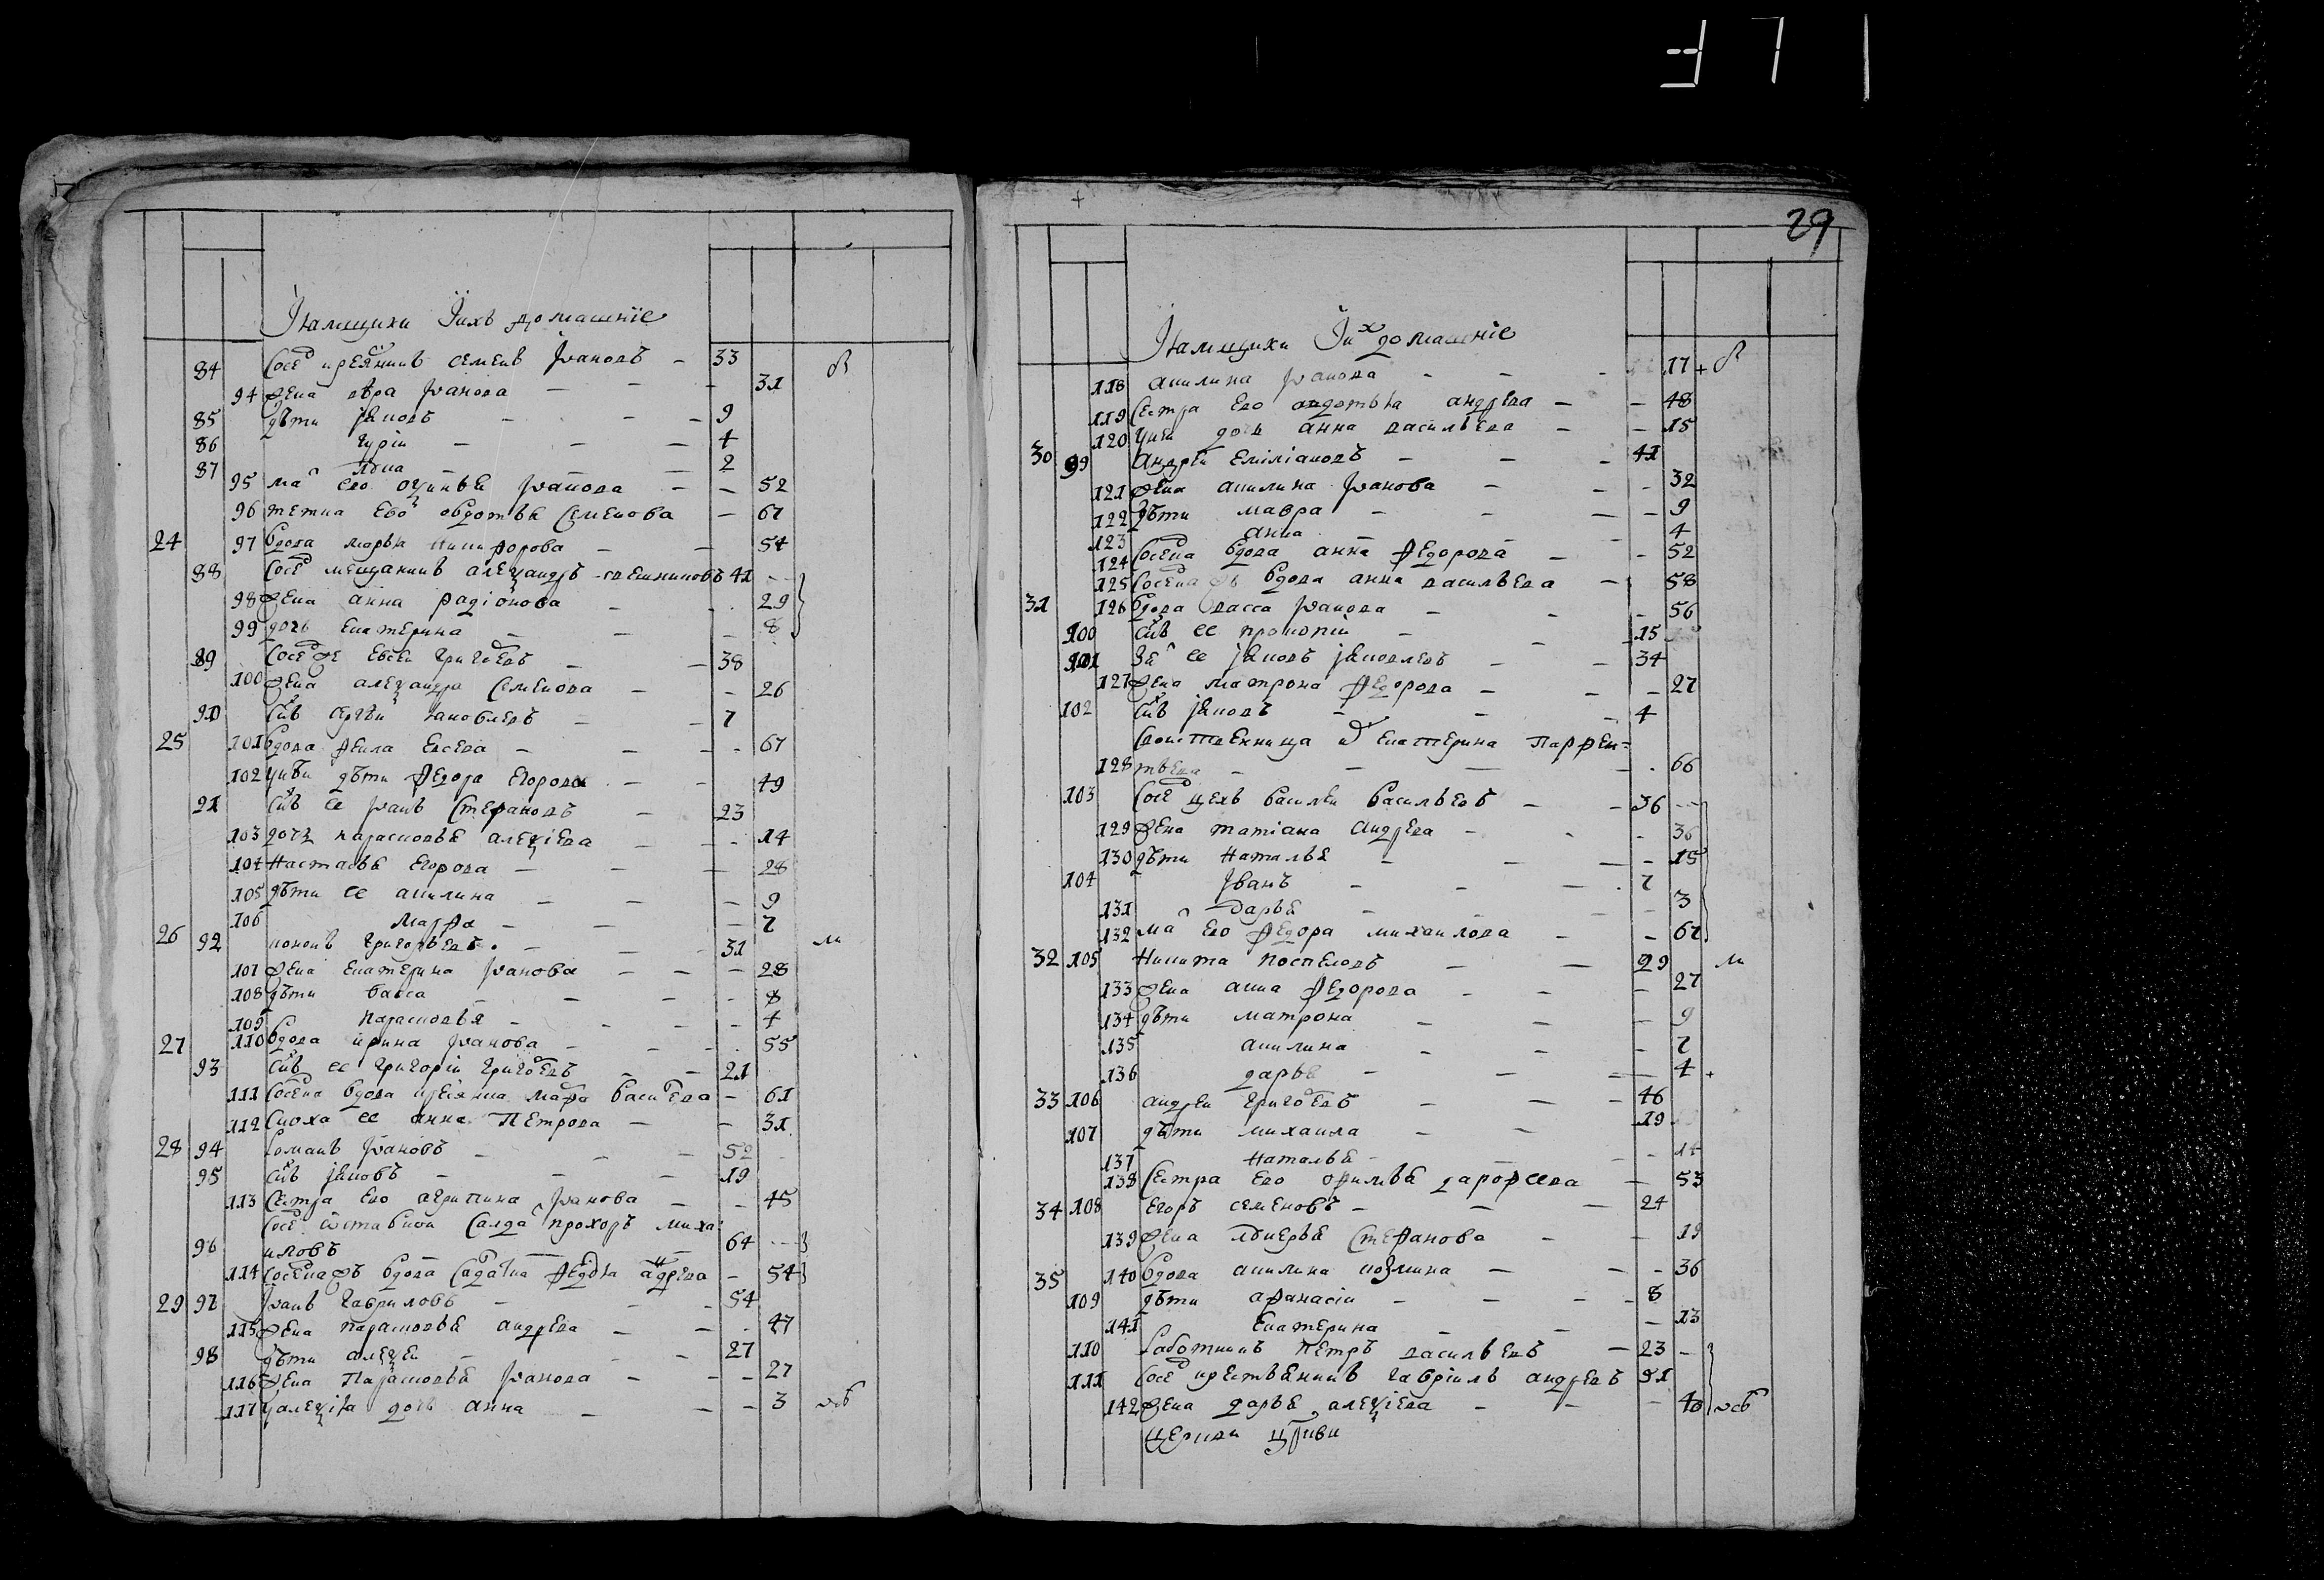 Ямщики И ихъ домашніе
84 Сосед крестянинъ семенъ Ивановъ - 33
94 жена вѣра Иванова - - - 31
85 дѣти яковъ - - - 9
86 гурій - - - 4
87 - - 2
95 ма его Иванова - - 52
96 тетка Ево овдотья Семенова - 67
24 97 вдова марья никифорова - - 54
88 Сосед мещанинъ алеѯандръ 41
98 жена анна радіонова - - 29
99 дочь Екатерина - - - 8
89 Сосед же Евсеи григоевъ - - 38
100 жена алеѯандра Семенова - - 26
90 снъ сергѣй яковлевъ - - 7
25 101 вдова фекла Евсева - - - 67
102 дѣти федора Егорова - - 49
91 снъ ее иванъ Стефановъ - 23
103 дочь парасковья алеѯіева - - 14
104 Настасья Егорова - - - 28
105 дѣти ее акилина - - - 9
106 Марфа - - - 7
26 92 кононъ григорьевъ - - 31
107 жена Екатерина Иванова - - - 28
108 дѣти васса - - - - 8
109 парасковья - - - - 4
27 110 вдова ирина Иванова - - - 55
93 снъ ее григорій григоевъ - - 21
111 Соседка вдова крестянка мавра васильева - 61
112 сноха ее анна Петрова - - 31
28 94 романъ Ивановъ - - - 52
95 снъ яковъ - - - 19
113 сестра Ево агрипина Иванова - - 45
Сосед отставной Салда прохоръ миха
96 иловъ - - - 64
114 Соседка жъ вдова Салдатка федосья адрева - 54
29 97 Иванъ гавриловъ - - - 54
115 жена парасковья андрева - - - 47
98 дѣти алеѯеи - - - 27
116 жена Парасковья Иванова - - - 27
117 У алеѯія дочь анна - - - 3
29
Ямщики И их домашніе
118 акилина Иванова - - - 17
119 Сестра Ево авдотья андрева - - 48
120 У неи дочь анна васильева - - 15
30 99 Андреи Емиліановъ - - - 41
121 жена акилина Иванова - - - 32
122 дѣти мавра - - - - 9
123 анна - - - 4
124 Соседка вдова анна федорова - - 52
125 Соседка жъ вдова анна васильева - 58
31 126 вдова васса Иванова - - - 56
100 снъ ее прокопій - - - 15
101 зя ее яковъ яковлевъ - - 34
127 жена матрона федорова - - - 27
102 снъ яковъ - - - 4
Свойственница Екатерина Парфен=
128 тьева - - - - 66
103 Сосед цехъ василеи васильевъ - - 36
129 жена татіана андрева - - - 36
130 дѣти наталья - - - - 15
104 Иванъ - - - 7
131 дарья - - - 3
132 ма Ево федора михаилова - - 67
32 105 Никита поспеловъ - - 29
133 жена анна федорова - - - 27
134 дѣти матрона - - - 9
135 акилина - - - 7
136 дарья - - - 4
33 106 андреи григоевъ - - - 46
107 дѣти михаила - - 19
137 наталья - - - 14
138 Сестра Ево дарофеева - 53
34 108 Егоръ семеновъ - - - 24
139 жена Стефанова - - 19
35 140 вдова акилина козмина - - - 36
109 дѣти афанасіи - - - - 8
141 Екатерина - - - 13
110 работникъ Петръ васильевъ - 23 -
111 Сосед крестьянинъ гавріилъ андревъ 51
142 жена дарья алеѯіева - - - 40